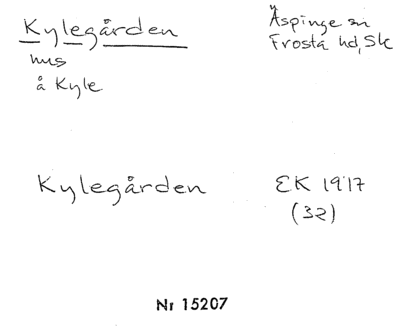 Kylegården
Äspinge sn
Frosta hd, Sk
hus
å Kyle
Kylegården
EK 1917
(32)
Nr 15207